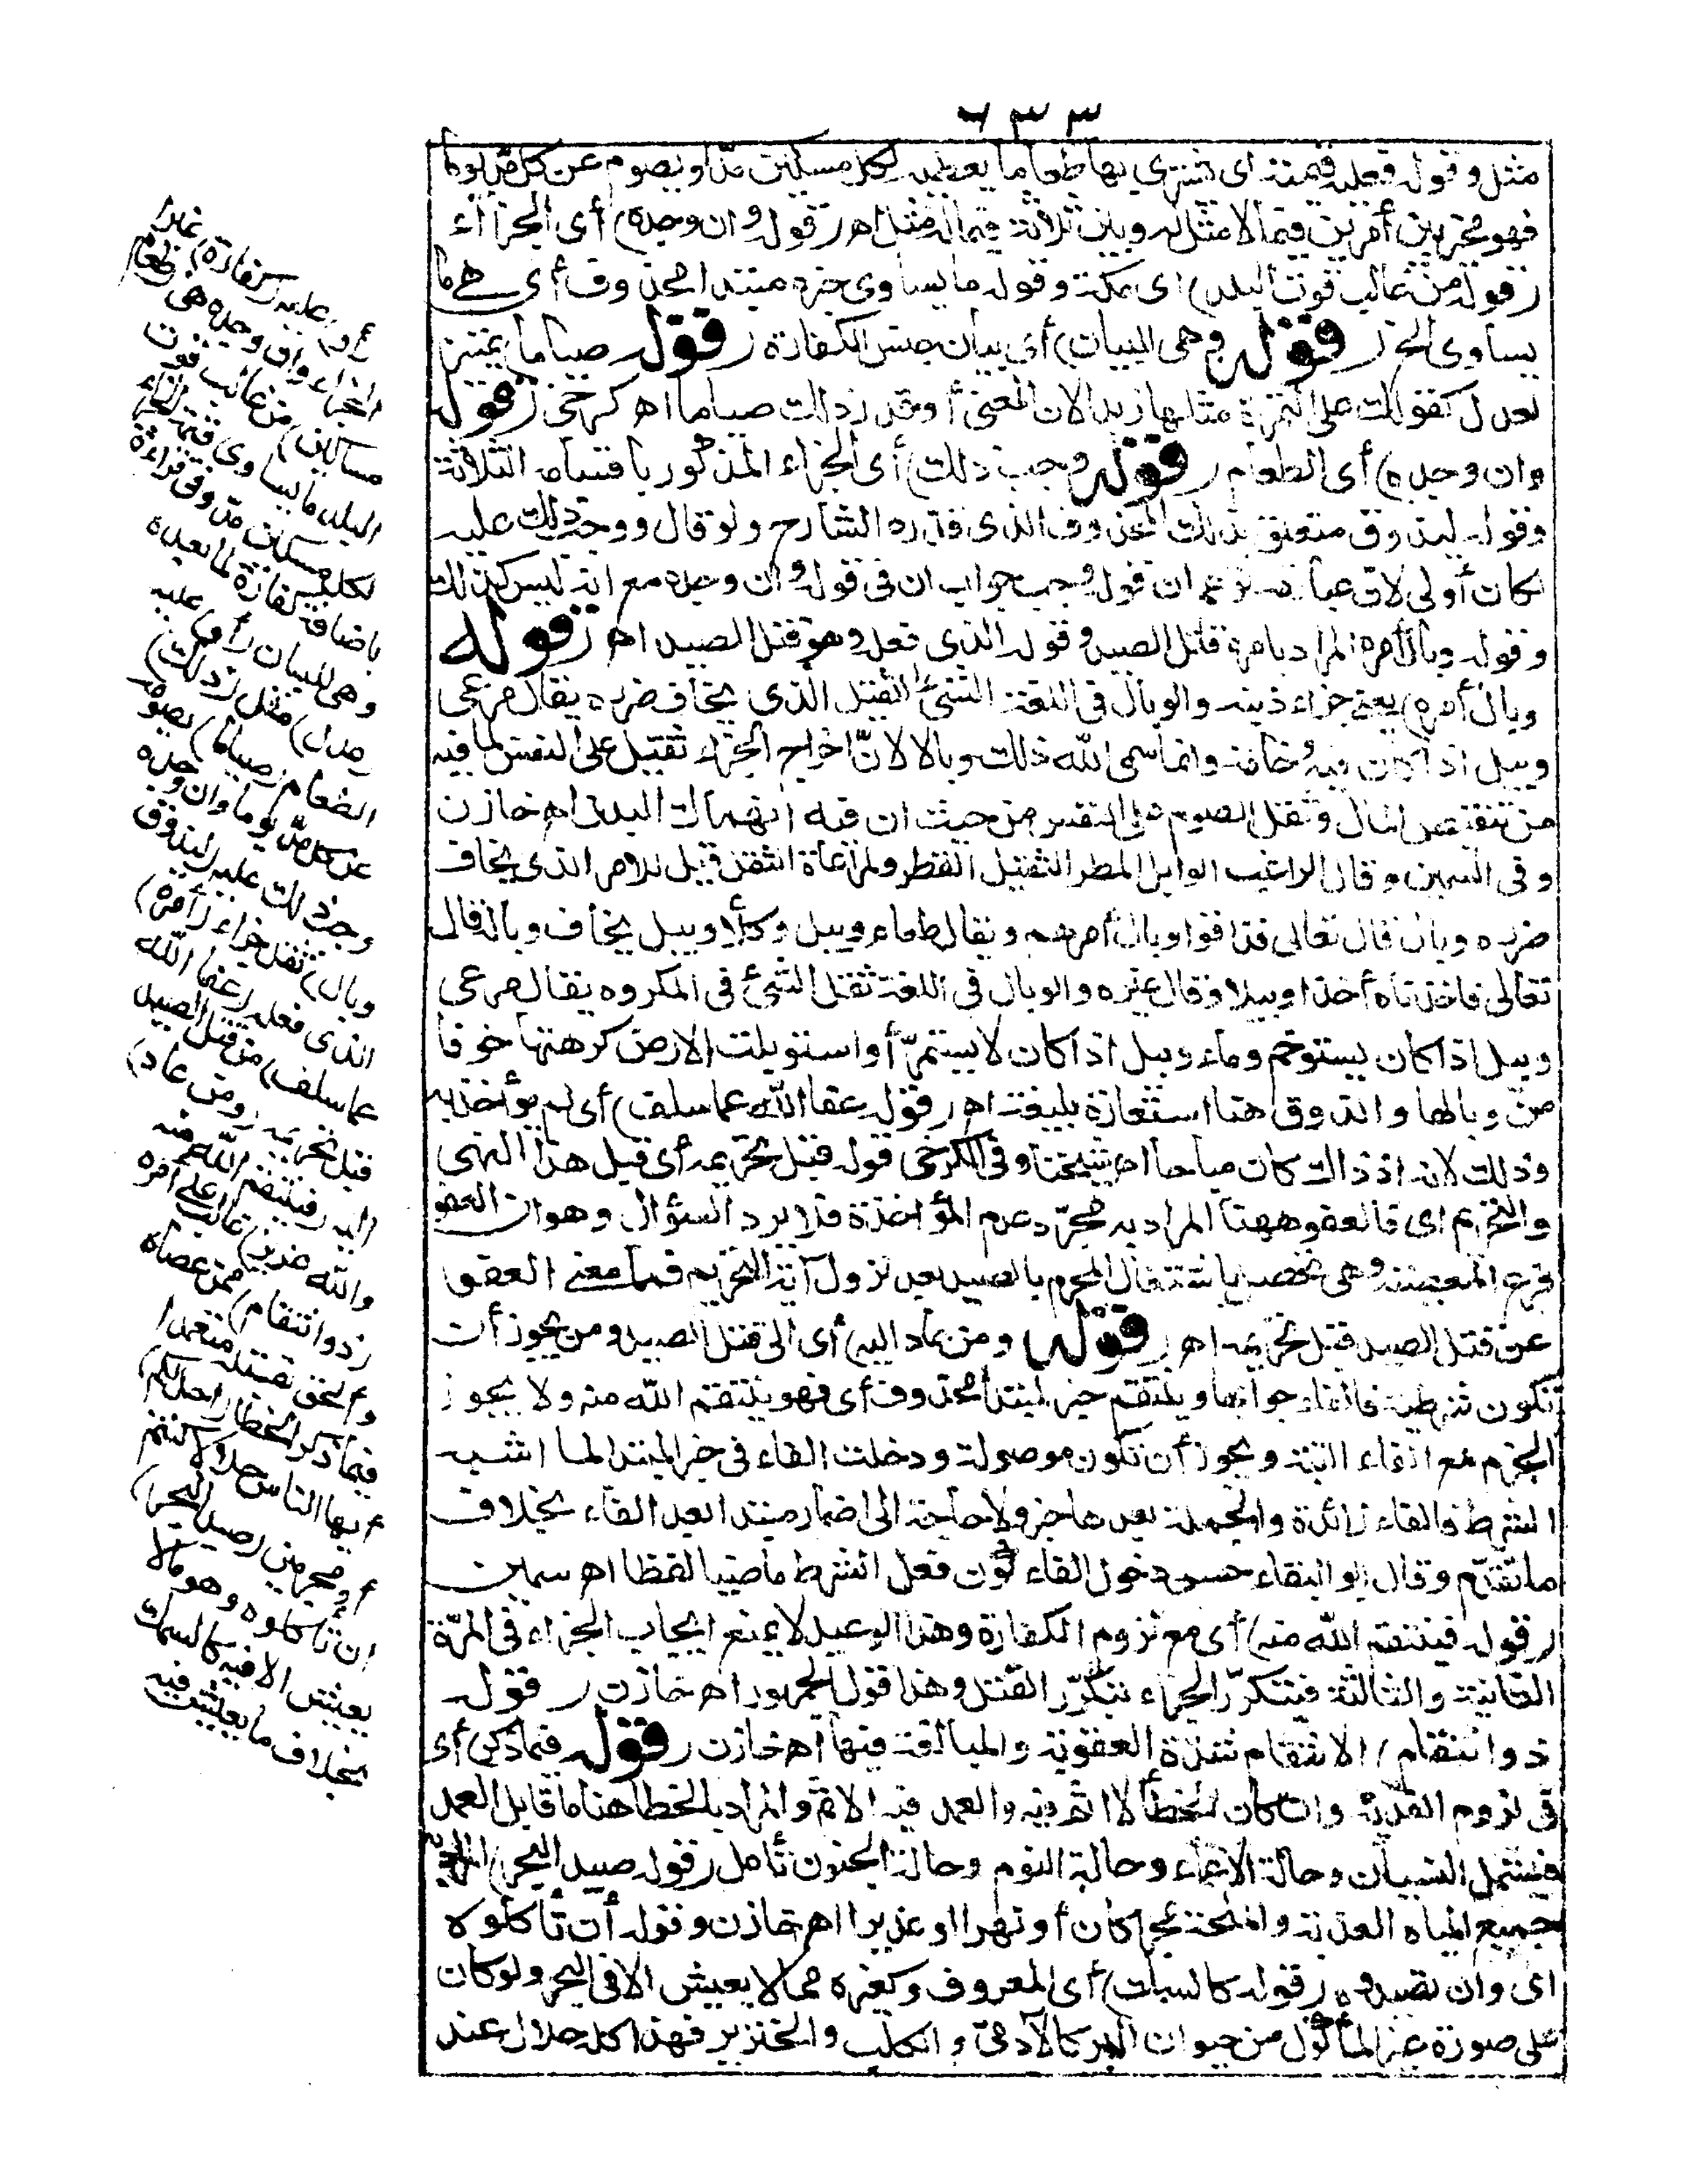 ٦٣٣
مثل وقوله فعليه قيمته أى يشترى بها طعاما يعطيه لكل مسكين مدّ أو يصوم عن كل مدّ يوما
فهو مخير بين أمرين فيما لا مثل له وبين ثلاثة فيما له مثل اهـ (قوله وان وجده) أى الجزاء
(قوله من غالب قوت البلد) اى مكة وقوله ما يساوى خبره مبتدا محذوف أى هى ما
يساوى الخ (قوله وهى للبيان) أى بيان جنس الكفارة (قوله صياما) تمييز
لعدل كقولك على التمرة مثلها زبدا لان المعنى أو قدر ذلك صياما اهـ كرخى (قوله
وان وجده) أى الطعام (قوله وجب ذلك) أى الجزاء المذكور بأقسامه الثلاثة
وقوله ليذوق متعلق بذلك المحذوف الذى قدره الشارح ولو قال ووجب ذلك عليه
لكان أولى لان عبارته توهم ان قوله وجب جواب ان فى قوله وان وجده مع انه ليس كذلك
وقوله وبال أمره المراد بامره قتل الصيد وقوله الذى فعله وهو قتل الصيد اهـ (قوله
وبال أمره) يعنى جزاء ذنبه والوبال فى اللغة الشئ الثقيل الذى يخاف ضرره يقال مرعى
وبيل اذا كان فيه وخامة وانما سمى الله ذلك وبالا لانّ اخراج الجزاء ثقيل على النفس لما فيه
من تنقيص المال وثقل الصوم على النفس من حيث ان فيه انهاك البدن اهـ خازن
وفى السمين وقال الراغب الوابل المطر الثقيل القطر ولمراعاة الثقل قيل للامر الذى يخاف
ضرره وبال قال تعالى فذاقوا وبال أمرهم ويقال طعام وبيل وكلأ وبيل يخاف وباله قال
تعالى فاخذناه أخذا وبيلا وقال غيره والوبال فى اللغة ثقل الشئ فى المكروه يقال مرعى
وبيل اذا كان يستوخم وماء وبيل اذا كان لا يستمرّأ واستوبلت الارض كرهتها خوفا
من وبالها والذوق هنا استعارة بليغة اهـ (قوله عفا الله عما سلف) أى لم يؤاخذ به
وذلك لانه اذ ذاك كان مباحا اهـ شيخنا وفى الكرخى قوله قبل تحريمه أى قبل هذا النهى
والتحريم اى فالعفو ههنا المراد به مجرّد عدم المؤاخذة فلا يرد السؤال وهو ان العفو
فرع المعصية وهى تحصل باشتغال المحرم بالصيد بعد نزول آية التحريم فما معنى العفو
عن قتل الصيد قبل تحريمه اهـ (قوله ومن عاد اليه) أى الى قتل الصيد ومن يجوز أن
تكون شرطية فالفاء جوابها وينتقم خبر لمبتدأ محذوف أى فهو ينتقم الله منه ولا يجوز
الجزم مع الفاء البتة ويجوز أن تكون موصولة ودخلت الفاء فى خبر المبتدا لما اشبه
الشرط فالفاء زائدة والجملة بعدها خبر ولا حاجة الى اضمار مبتدا بعد الفاء بخلاف
ما تقدّم وقال ابو البقاء حسن دخول الفاء كون فعل الشرط ماضيا لفظا اهـ سمين
(قوله فينتقم الله منه) أى مع لزوم الكفارة وهذا الوعيد لا يمنع ايجاب الجزاء فى المرّة
الثانية والثالثة فيتكرّر الجزاء بتكرّر القتل وهذا قول الجمهور اهـ خازن (قوله
ذو انتقام) الانتقام شدّة العقوبة والمبالغة فيها اهـ خازن (قوله فيما ذكر) أى
فى لزوم الفدية وان كان الخطأ لا اثم فيه والعمد فيه الاثم والمراد بالخطا هنا ما قابل العمد
فيشمل النسيان وحالة الاغماء وحالة النوم وحالة الجنون تأمل (قوله صيد البحر) المراد به
جميع المياه العذبة والملحة بحرا كان أو نهرا او غديرا اهـ خازن وقوله أن تأكلوه
اى وان تصيدوه (قوله كالسمك) أى المعروف وكغيره مما لا يعيش الا فى البحر ولو كان
على صورة غير المأكول من حيوان البر كالآدمىّ والكلب والخنزير فهذا كله حلال عند
(أو) عليه (كفارة) غير
الجزاء وان وجده هى (طعام
مساكين) من غالب قوت
البلد ما يساوى قيمة الجزاء
لكل مسكين مدّ وفى قراءة
باضافة كفارة لما بعده
وهى للبيان (أو) عليه
(عدل) مثل (ذلك)
الطعام (صياما) يصومه
عن كل مدّ يوما وان وجده
وجب ذلك عليه (ليذوق
وبال) ثقل جزاء (أمره)
الذى فعله (عفا الله
عما سلف) من قتل الصيد
قبل تحريمه (ومن عاد)
اليه (فينتقم الله منه
والله عزيز) غالب على أمره
(ذو انتقام) ممن عصاه
وألحق بقتله متعمدا
فيما ذكر الخطأ (احل لكم)
أيها الناس حلالا كنتم
أو محرمين (صيد البحر)
ان تأكلوه وهو ما لا
يعيش الا فيه كالسمك
بخلاف ما يعيش فيه